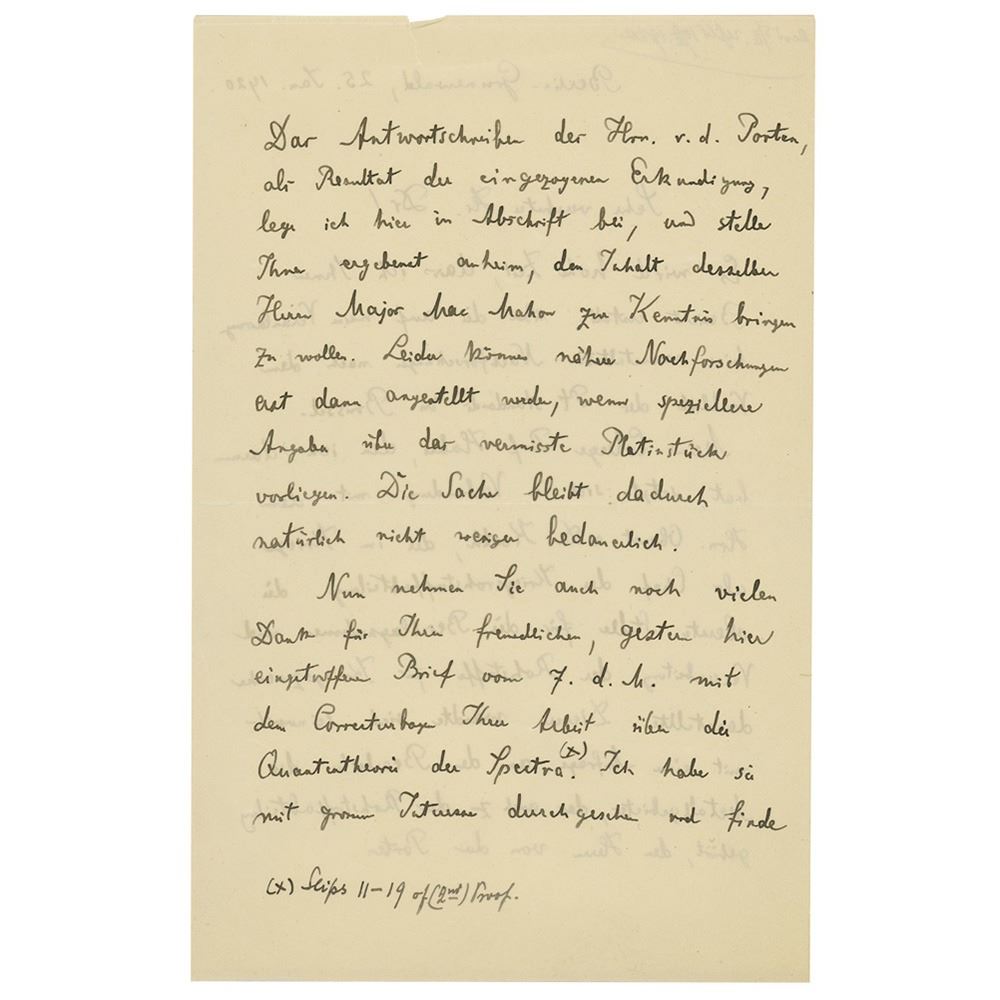 Das Antwortschreiben des Hrn. v. d. Porten,
als Resultat der eingezogenen Erkundigung,
lege ich hier in Abschrift bei, und stelle
Ihnen ergebenst anheim, den Inhalt desselben
Herrn Major Mac Mahon zur Kenntnis bringen
zu wollen. Leider können nähere Nachforschungen
erst dann angestellt werden, wenn speziellere
Angaben über das vermisste Platinstück
vorliegen. Die Sache bleibt dadurch
natürlich nicht weniger bedauerlich.
Nun nehmen Sie auch noch vielen
Dank für Ihren freundlichen, gestern hier
eingetroffenen Brief vom 7. d. M. mit
den Correcturbogen Ihrer Arbeit über die
Quantentheorie der Spectra.(x) Ich habe sie
mit grossem Interesse durchgesehen und finde
(x) Slips 11-19 of (2nd) Proof.
Berlin-Grunewald, 25. Jan. 1920.